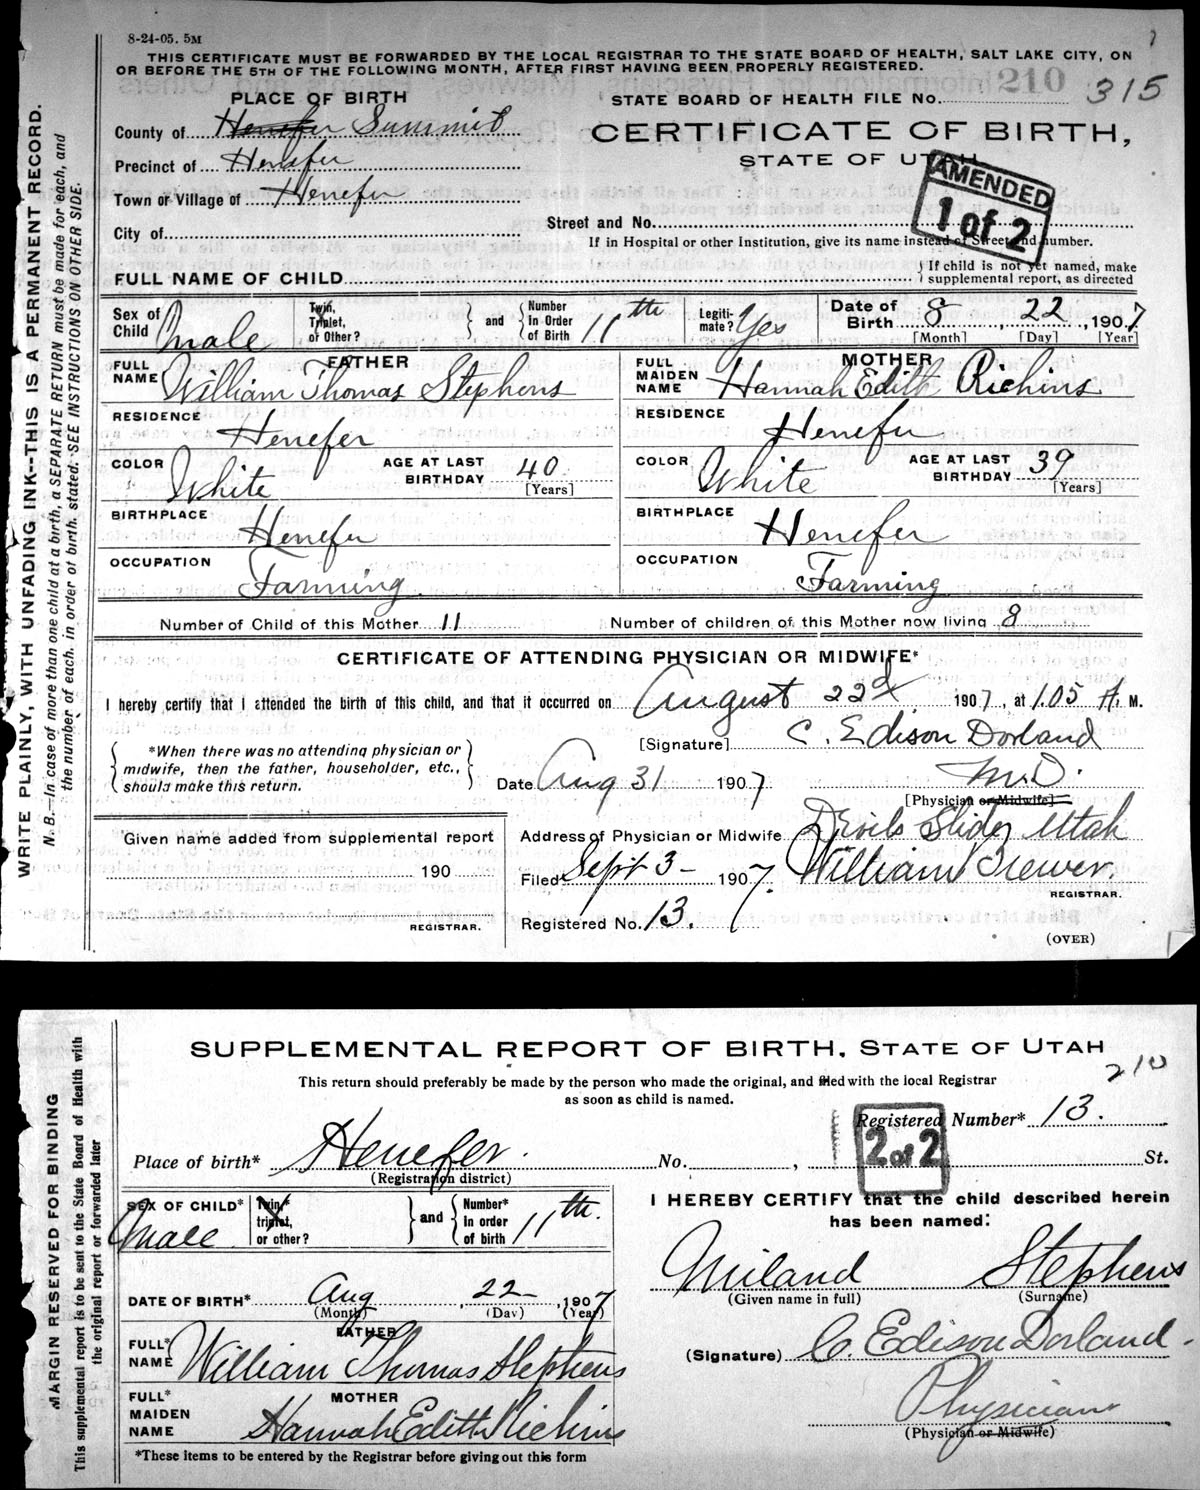 8-24-05. 5M
THIS CERTIFICATE MUST BE FORWARDED BY THE LOCAL REGISTRAR TO THE STATE BOARD OF HEALTH, SALT LAKE CITY, ON
OR BEFORE THE 5TH OF THE FOLLOWING MONTH, AFTER FIRST HAVING BEEN PROPERLY REGISTERED.
PLACE OF BIRTH
STATE BOARD OF HEALTH FILE No. 210 315
County of Henefer Summit
CERTIFICATE OF BIRTH,
STATE OF UTAH
Precinct of Henefer
AMENDED
1 of 2
Town or Village of Henefer
City of
Street and No.
If in Hospital or other Institution, give its name instead of Street and number.
FULL NAME OF CHILD
If child is not yet named, make
supplemental report, as directed
Sex of Child Male
Twin, Triplet, or Other?
and
Number In Order of Birth 11th
Legiti-mate? Yes
Date of Birth 8, 22, 1907
[Month] [Day] [Year]
FATHER
FULL NAME William Thomas Stephens
MOTHER
FULL MAIDEN NAME Hannah Edith Richins
RESIDENCE Henefer
RESIDENCE Henefer
COLOR White
AGE AT LAST BIRTHDAY 40 [Years]
COLOR White
AGE AT LAST BIRTHDAY 39 [Years]
BIRTHPLACE Henefer
BIRTHPLACE Henefer
OCCUPATION Farming
OCCUPATION Farming
Number of Child of this Mother 11
Number of children of this Mother now living 8
CERTIFICATE OF ATTENDING PHYSICIAN OR MIDWIFE*
I hereby certify that I attended the birth of this child, and that it occurred on August 22d 1907, at 1.05 A. M.
*When there was no attending physician or
midwife, then the father, householder, etc.,
should make this return.
[Signature] C. Edison Dorland
Date Aug 31 1907
M.D.
[Physician or Midwife]
Given name added from supplemental report
190
REGISTRAR.
Address of Physician or Midwife Devils Slide, Utah
Filed Sept 3- 1907. William Brewer.
REGISTRAR.
Registered No. 13.
(OVER)
WRITE PLAINLY, WITH UNFADING INK--THIS IS A PERMANENT RECORD.
N. B.—In case of more than one child at a birth, a SEPARATE RETURN must be made for each, and
the number of each, in order of birth, stated. SEE INSTRUCTIONS ON OTHER SIDE.
SUPPLEMENTAL REPORT OF BIRTH, STATE OF UTAH
210
This return should preferably be made by the person who made the original, and filed with the local Registrar
as soon as child is named.
Registered Number* 13.
2 of 2
Place of birth* Henefer.
(Registration district)
No. , St.
SEX OF CHILD* Male
Twin,* triplet, or other?
and
Number* In order of birth 11th.
I HEREBY CERTIFY that the child described herein
has been named:
Miland Stephens
(Given name in full) (Surname)
DATE OF BIRTH* Aug, 22, 1907
(Month) (Day) (Year)
FATHER
FULL* NAME William Thomas Stephens
(Signature) C. Edison Dorland.
MOTHER
FULL* MAIDEN NAME Hannah Edith Richins
Physician
(Physician or Midwife)
*These items to be entered by the Registrar before giving out this form
MARGIN RESERVED FOR BINDING
This supplemental report is to be sent to the State Board of Health with
the original report or forwarded later